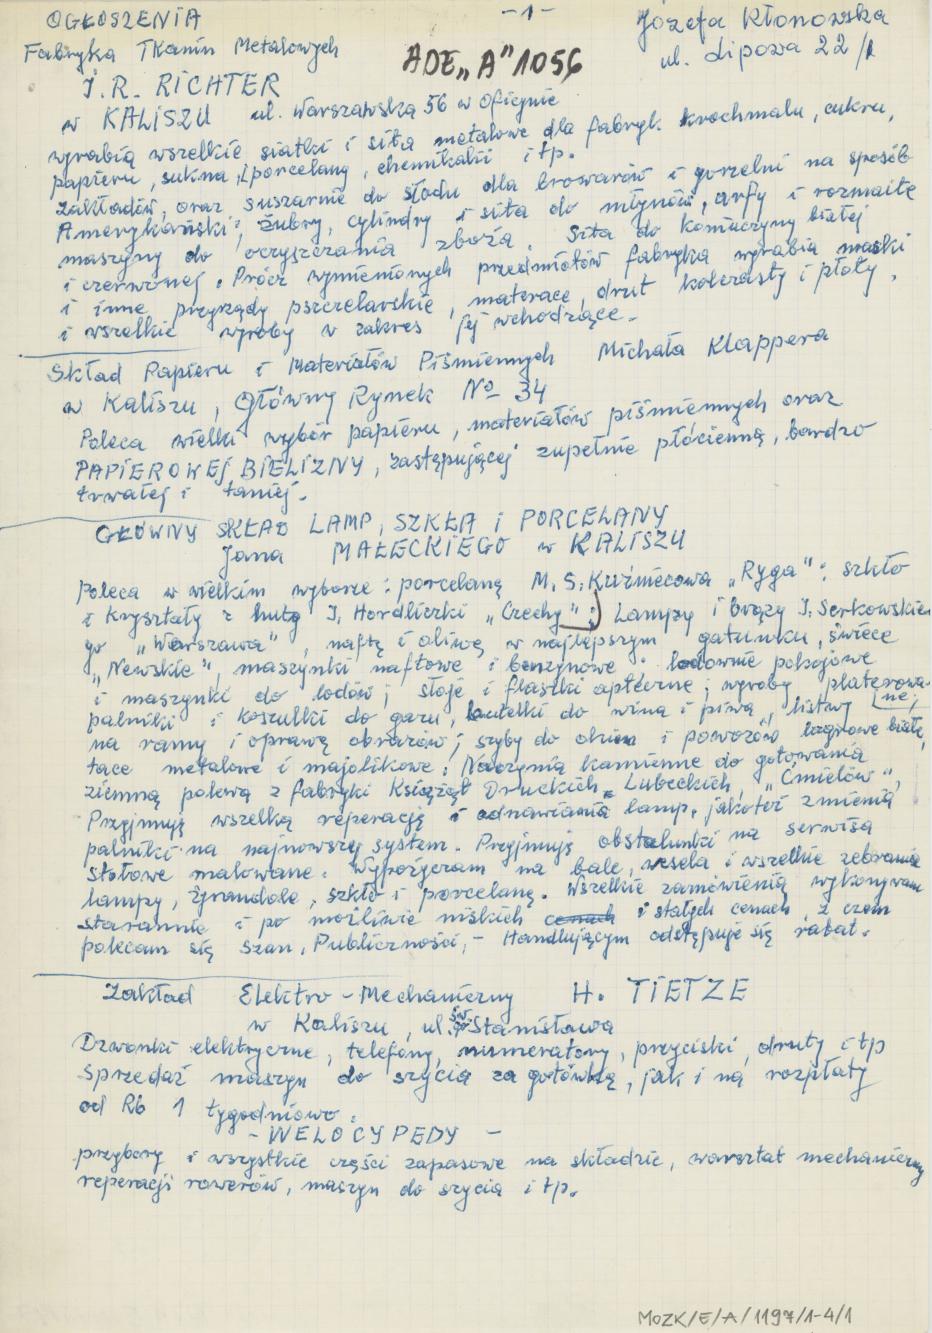 OGŁOSZENIA
-1-
Józefa Kłonowska
ul. Lipowa 22/1
Fabryka Tkanin Metalowych
ADE „A" 1056
J. R. RICHTER
w KALISZU ul. Warszawska 56 w Oficynie
wyrabia wszelkie siatki i sita metalowe dla fabryk krochmalu, cukru,
papieru, sukna, porcelany, chemikalii itp.
zakładów, oraz suszarnie do słodu dla browarów i gorzelni na sposób
Amerykański; żubry, cylindry i sita do młynów, arfy i rozmaite
maszyny do oczyszczania zboża. Sita do koniczyny białej
i czerwonej. Prócz wymienionych przedmiotów fabryka wyrabia maski
i inne przyrządy pszczelarskie, materace, drut kolczasty i płoty,
i wszelkie wyroby w zakres jej wchodzące.
Skład Papieru i Materiałów Piśmiennych Michała Klappera
w Kaliszu, Główny Rynek No 34
Poleca wielki wybór papieru, materiałów piśmiennych oraz
PAPIEROWEJ BIELIZNY, zastępującej zupełnie płócienną, bardzo
trwałej i taniej.
GŁÓWNY SKŁAD LAMP, SZKŁA i PORCELANY
Jana MAŁECKIEGO w KALISZU
Poleca w wielkim wyborze: porcelanę M. S. Kuźniecowa „Ryga": szkło
i Kryształy z huty J. Hordliczki „Czechy"; Lampy i brązy J. Serkowskie
go „Warszawa", naftę i oliwę w najlepszym gatunku, świece
„Newskie", maszynki naftowe i benzynowe i lodownie pokojowe
i maszynki do lodów; słoje i flaszki apteczne; wyroby platerowa-
ne;
palniki i koszulki do gazu, butelki do wina i piwa, listwy
na ramy i oprawę obrazów; szyby do okien i powozów lagrowe białe,
tace metalowe i majolikowe; Naczynia kamienne do gotowania
ziemną polewą z fabryki Książąt Druckich Lubeckich, „Ćmielów",
Przyjmuję wszelką reperację i odnawiania lamp, jakoteż zmienia
palniki na najnowszy system. Przyjmuję obstalunki na serwisa
stołowe malowane. Wypożyczam na bale, wesela i wszelkie zebrania
lampy, żyrandole, szkło i porcelanę. Wszelkie zamówienia wykonywam
starannie i po możliwie niskich cenach i stałych cenach, z czem
polecam się Szan. Publiczności, - Handlującym odstępuje się rabat.
Zakład Elektro-Mechaniczny H. TIETZE
w Kaliszu, ul. Św-go Stanisława
Dzwonki elektryczne, telefony, numeratory, przyciski, druty itp
Sprzedaż maszyn do szycia za gotówkę, jak i na rozpłaty
od Rb 1 tygodniowo.
- WELOCYPEDY -
przybory i wszystkie części zapasowe na składzie, warsztat mechaniczny
reperacji rowerów, maszyn do szycia itp.
MOZK/E/A/1197/1-4/1